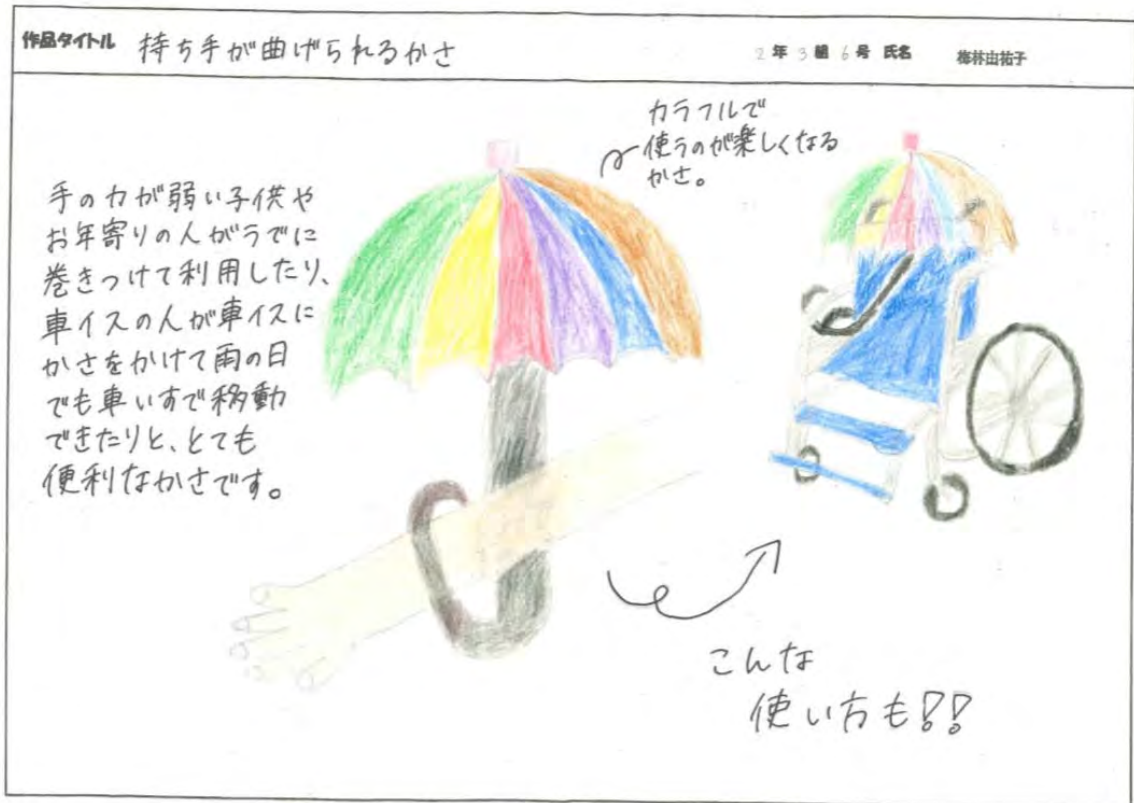 作品タイトル 持ち手が曲げられるかさ
2年3組6号 氏名 梅林由祐子
カラフルで
使うのが楽しくなる
かさ。
手の力が弱い子供や
お年寄りの人がうでに
巻きつけて利用したり、
車イスの人が車イスに
かさをかけて雨の日
でも車いすで移動
できたりと、とても
便利なかさです。
こんな
使い方も!!